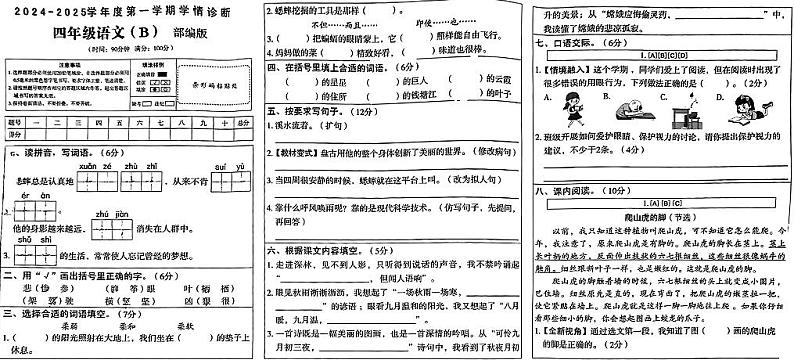 2024-2025学年度第一学期学情诊断
四年级语文(B) 部编版
(时间:90分钟 满分:100分)
注意事项
填涂样例
条形码粘贴处
题号 一 二 三 四 五 六 七 八 九 十 总分
得分
一、读拼音,写词语。(6分)
xuǎn zé zhù zhǐ suí yù
1.蟋蟀总是认真地 ,从来不肯 。
ér àn
2.
zhú jiàn
他的身影越来越远, 消失在人群中。
shū shì
3. 的生活,常常使人忘记曾经的梦想。
二、用“√”画出括号里正确的字。(6分)
三、选择合适的词语填空。(7分)
柔弱 柔和 柔软
1.( )的阳光照射在大地上,我们坐在( )的垫子上
休息。
2.蟋蟀挖掘的工具是那样( )。
不但……而且……
3.( )把蝙蝠的眼睛蒙上,它( )照样能自由飞行。
4.妈妈做的菜( )精致好看,( )味道也很棒。
四、在括号里填上合适的词语。(6分)
( )的星星 ( )的巨人 ( )的云霞
( )的住所 ( )的钱塘江 ( )的叶子
五、按要求写句子。(12分)
1.溪水流着。(扩句)
2.【教材变式】盘古用他的整个身体创新了美丽的世界。(修改病句)
3.当四周很安静的时候,蟋蟀就在这平台上叫。(改为拟人句)
4.靠什么呼风唤雨呢?靠的是现代科学技术。(仿写句子,先提问,
再回答)
六、根据课文内容填空。(5分)
1.走进深林,见不到人影,只听得到说话的声音,我不禁吟诵起
,但闻人语响”。
2.眼见秋雨淅淅沥沥,我想起了“一场秋雨一场寒,
”的谚语;眼看九月温和的阳光,我又想起了“八月
暖,九月温, ”。
3.一首诗既是一幅美丽的图画,也是一首深情的吟唱。从“可怜九
月初三夜, ”诗句中,我看到了秋夜月初
升的美景;从“嫦娥应悔偷灵药, ”中,我
读懂了嫦娥的悲凉孤寂。
七、口语交际。(6分)
1.[A][B][C][D]
1.【情境融入】这个学期,同学们爱上了阅读,但在阅读时出现了
很多错误的用眼行为,下列做法正确的是( )。(2分)
A B C D
2.班级开展如何爱护眼睛、保护视力的讨论,请你提出保护视力的
建议,不少于2条。(4分)
八、课内阅读。(10分)
1.[A][B][C]
爬山虎的脚(节选)
以前,我只知道这种植物叫爬山虎,可不知道它怎么能爬。今
年,我注意了,原来爬山虎是有脚的。爬山虎的脚长在茎上。茎上
长叶柄的地方,反面伸出枝状的六七根细丝,这些细丝很像蜗牛的
触角。细丝跟新叶子一样,也是嫩红的。这就是爬山虎的脚。
爬山虎的脚触着墙的时候,六七根细丝的头上就变成小圆片,
巴住墙。细丝原先是直的,现在弯曲了,把爬山虎的嫩茎拉一把,
使它紧贴在墙上。爬山虎就是这样一脚一脚地往上爬。如果你仔细
看那些细小的脚,你会想起图画上蛟龙的爪子。
1.【全新视角】通过选文第一段,我知道了图( )画的爬山虎
的脚是正确的。(2分)